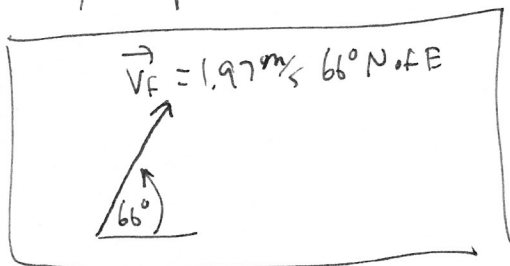 V_F = 1.97 m/s 66° N of E
66°